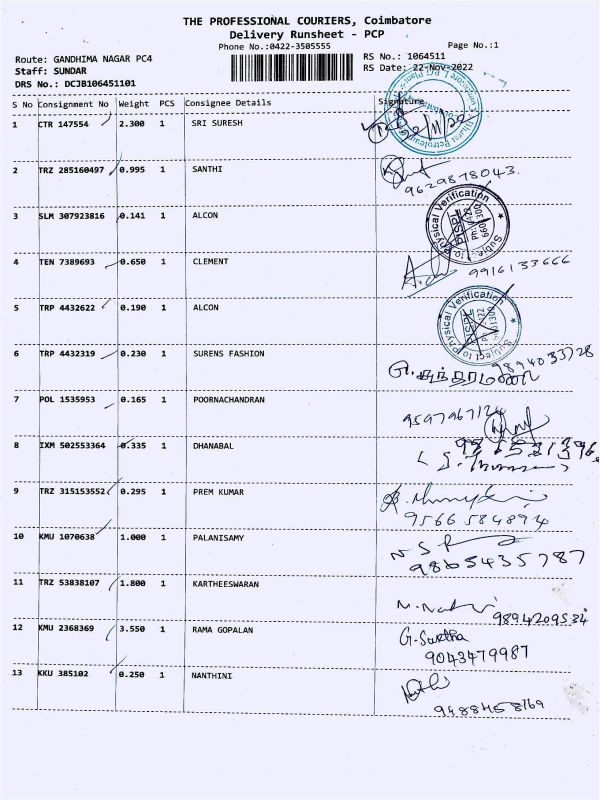 THE PROFESSIONAL COURIERS, Coimbatore
Delivery Runsheet - PCP
Phone No.:0422-3505555
Page No.:1
Route: GANDHIMA NAGAR PC4
RS No.: 1064511
Staff: SUNDAR
RS Date: 22-Nov-2022
DRS No.: DCJB106451101
S No Consignment No Weight PCS Consignee Details Signature
1 CTR 147554 2.300 1 SRI SURESH
2 TRZ 285160497 0.995 1 SANTHI
9629878043.
3 SLM 307923816 0.141 1 ALCON
Subject to Physical Verification
4 TEN 7389693 0.650 1 CLEMENT
9916133666
5 TRP 4432622 0.190 1 ALCON
Subject to Physical Verification
6 TRP 4432319 0.230 1 SURENS FASHION
9894033728
7 POL 1535953 0.165 1 POORNACHANDRAN
8 IXM 502553364 0.335 1 DHANABAL
9 TRZ 315153552 0.295 1 PREM KUMAR
9566584894
10 KMU 1070638 1.000 1 PALANISAMY
9865435787
11 TRZ 53838107 1.800 1 KARTHEESWARAN
9894209534
12 KMU 2368369 3.550 1 RAMA GOPALAN
G. Suetha
9043479987
13 KKU 385102 0.250 1 NANTHINI
9488458769